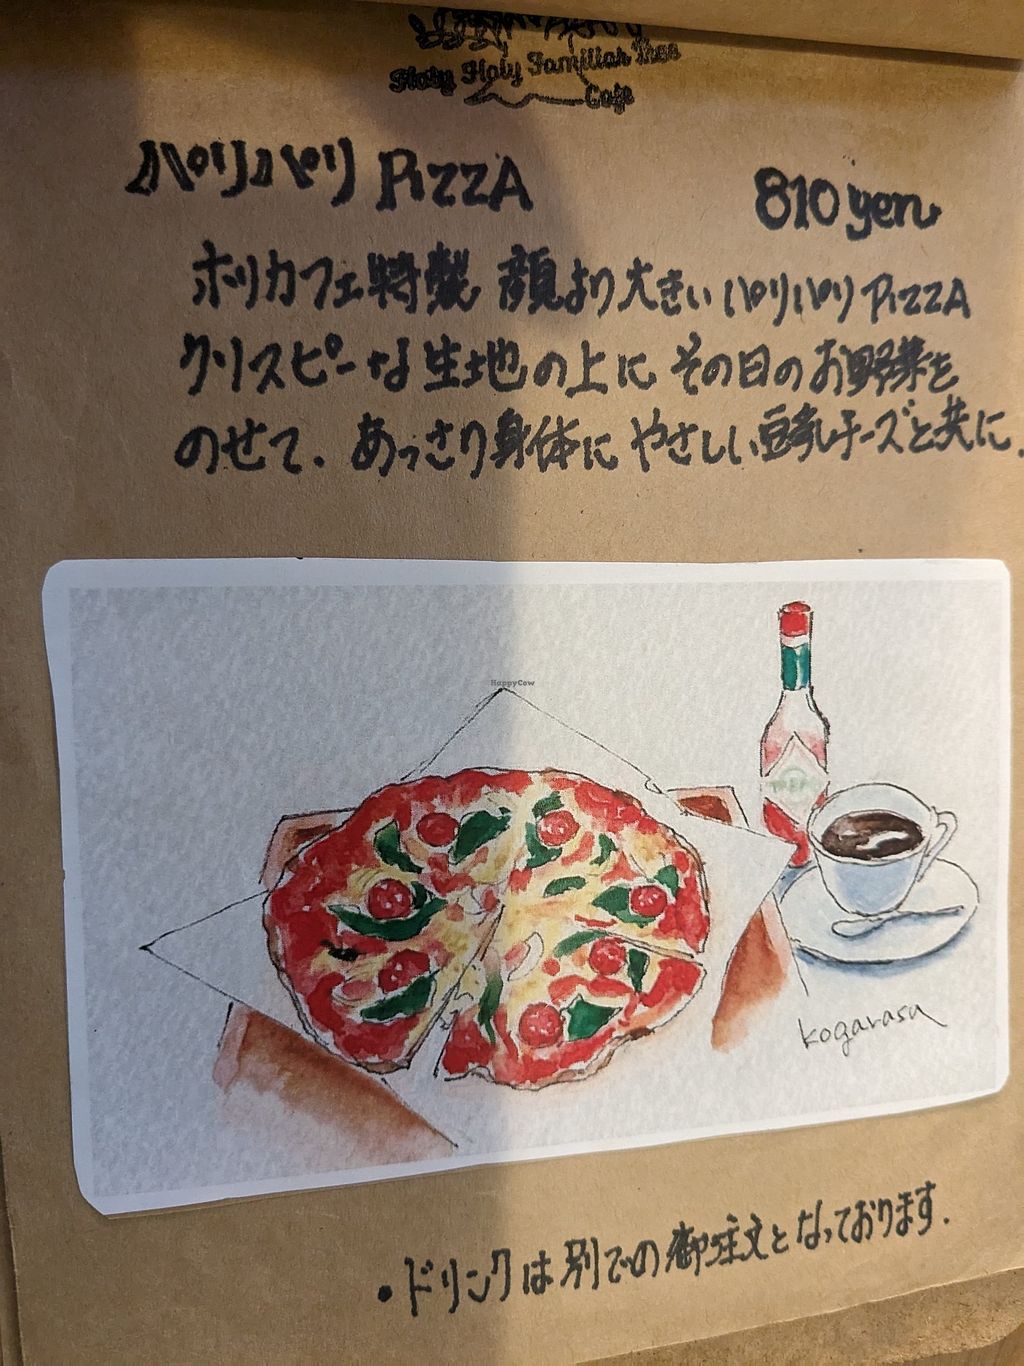 Holy Holy Familiar Tree
Cafe
パリパリ PIZZA 810 yen
ホリカフェ特製 顔より大きい パリパリ PIZZA
クリスピーな生地の上に その日のお野菜を
のせて. あっさり身体に やさしい豆乳チーズと共に.
HappyCow
kogarasu
• ドリンクは別での御注文となっております.